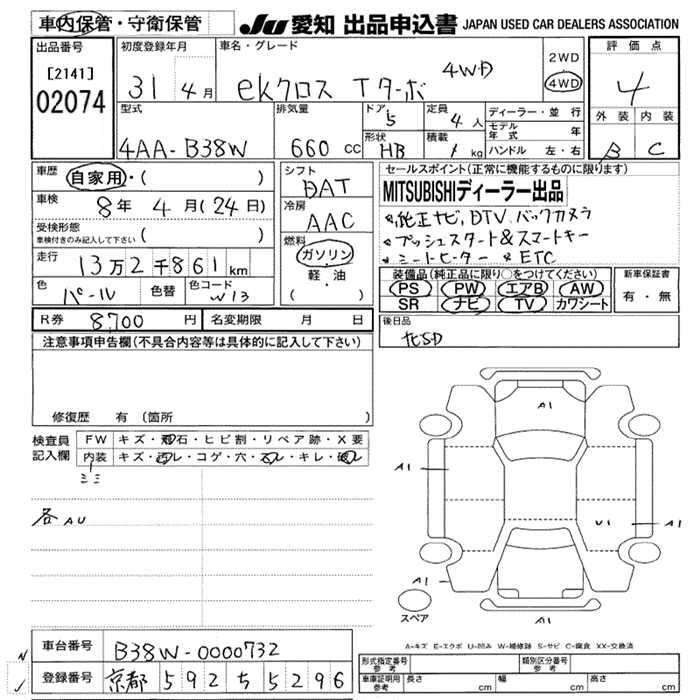 車内保管・守衛保管
JU 愛知 出品申込書 JAPAN USED CAR DEALERS ASSOCIATION
出品番号
[2141]
02074
初度登録年月
31 4月
車名・グレード
ekクロス Tターボ 4WD
2WD
4WD
評価点
4
外装 内装
B C
型式
4AA-B38W
排気量
660 cc
ドア
5
形状
HB
定員
4人
積載
kg
ディーラー・並行
モデル年式 年
ハンドル 左・右
車歴
自家用・( )
車検
8年 4月(24日)
受検形態
車検付きのみ記入して下さい ( )
走行
13万2千861km
色
パール
色替
色コード
W13
シフト
DAT
冷房
AAC
燃料
ガソリン
軽・油
( )
セールスポイント(正常に機能するものに限ります)
MITSUBISHIディーラー出品
*純正ナビ、DTV、バックカメラ
*プッシュスタート&スマートキー
*シートヒーター *ETC
装備品(純正品に限り○をつけてください)
PS PW エアB AW
SR ナビ TV カワシート
新車保証書
有・無
R券 8,700円
名変期限 月 日
後日品
注意事項申告欄(不具合内容等は具体的に記入して下さい)
修復歴 有(箇所 )
検査員記入欄
FW キズ・飛石・ヒビ割・リペア跡・X要
内装 キズ・汚レ・コゲ・穴・スレ・キレ・破レ
ミミ
各AU
A1
A1
U1
A1
A1
A1
スペア
A-キズ E-エクボ U-凹み W-補修跡 S-サビ C-腐食 XX-交換済
車台番号 B38W-0000732
登録番号 京都 592 ち 5296
型式指定番号
参考
類別区分番号
参考
車庫証明用
参考
長さ cm 幅 cm 高さ cm